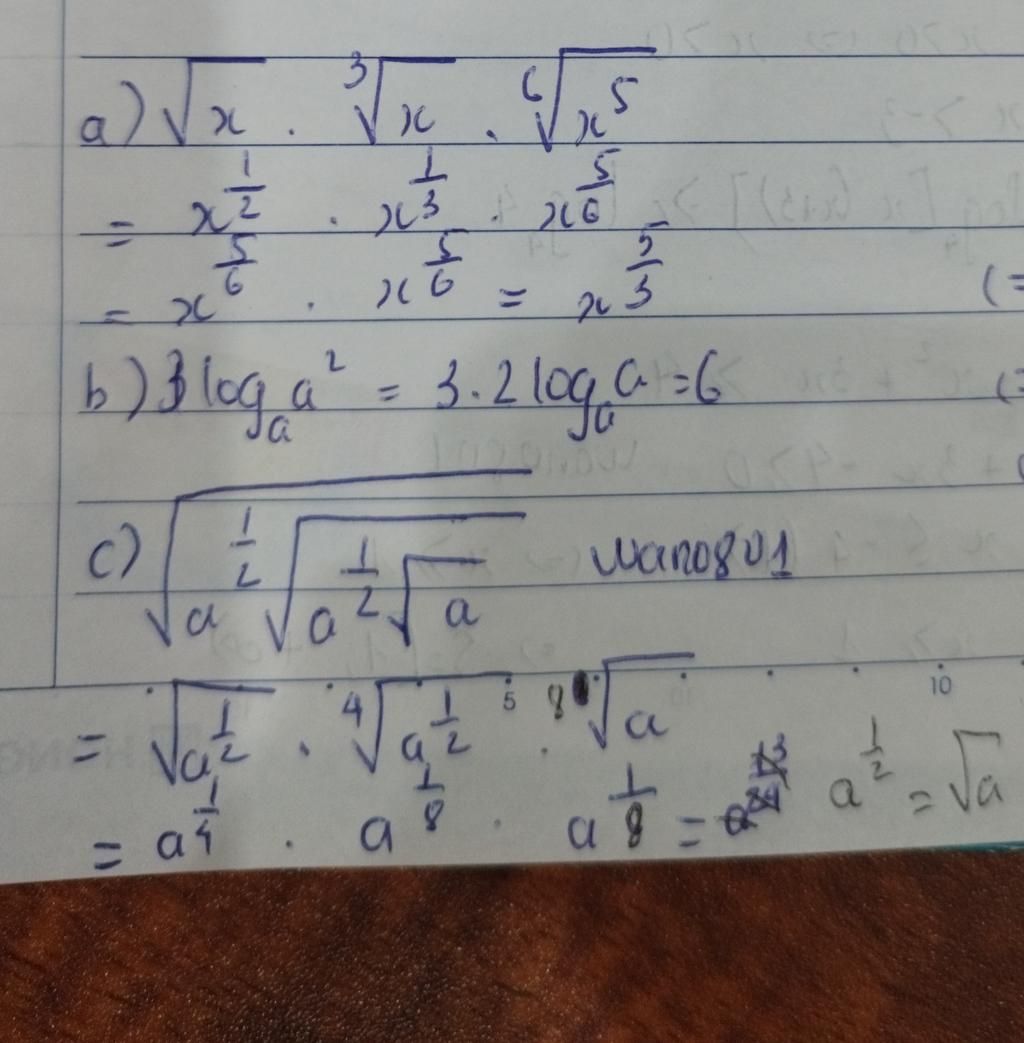 a) √x . ∛x . ⁶√x⁵
= x^(1/2) . x^(1/3) . x^(5/6)
= x^(5/6) . x^(5/6) = x^(5/3)
b) 3 log_a a² = 3.2 log_a a = 6
c) √(a^(1/2) √(a^(1/2) √a)) wano801
= √(a^(1/2)) . ⁴√(a^(1/2)) . ⁸√a
= a^(1/4) . a^(1/8) . a^(1/8) = a^(1/2) = √a
5 10